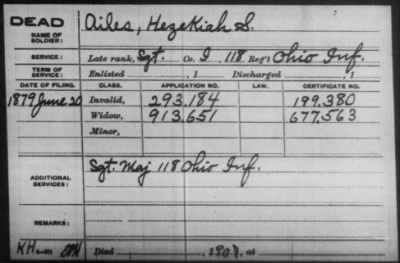 DEAD
NAME OF SOLDIER: Ailes, Hezekiah S.
SERVICE: Late rank, Sgt. Co. I, 118 Reg't Ohio Inf.
TERM OF SERVICE: Enlisted , 1 Discharged , 1
DATE OF FILING. CLASS. APPLICATION NO. LAW. CERTIFICATE NO.
1879 June 20 Invalid, 293,184 199,380
Widow, 913,651 677,563
Minor,
ADDITIONAL SERVICES: Sgt. Maj 118 Ohio Inf.
REMARKS:
Died , 190 , at